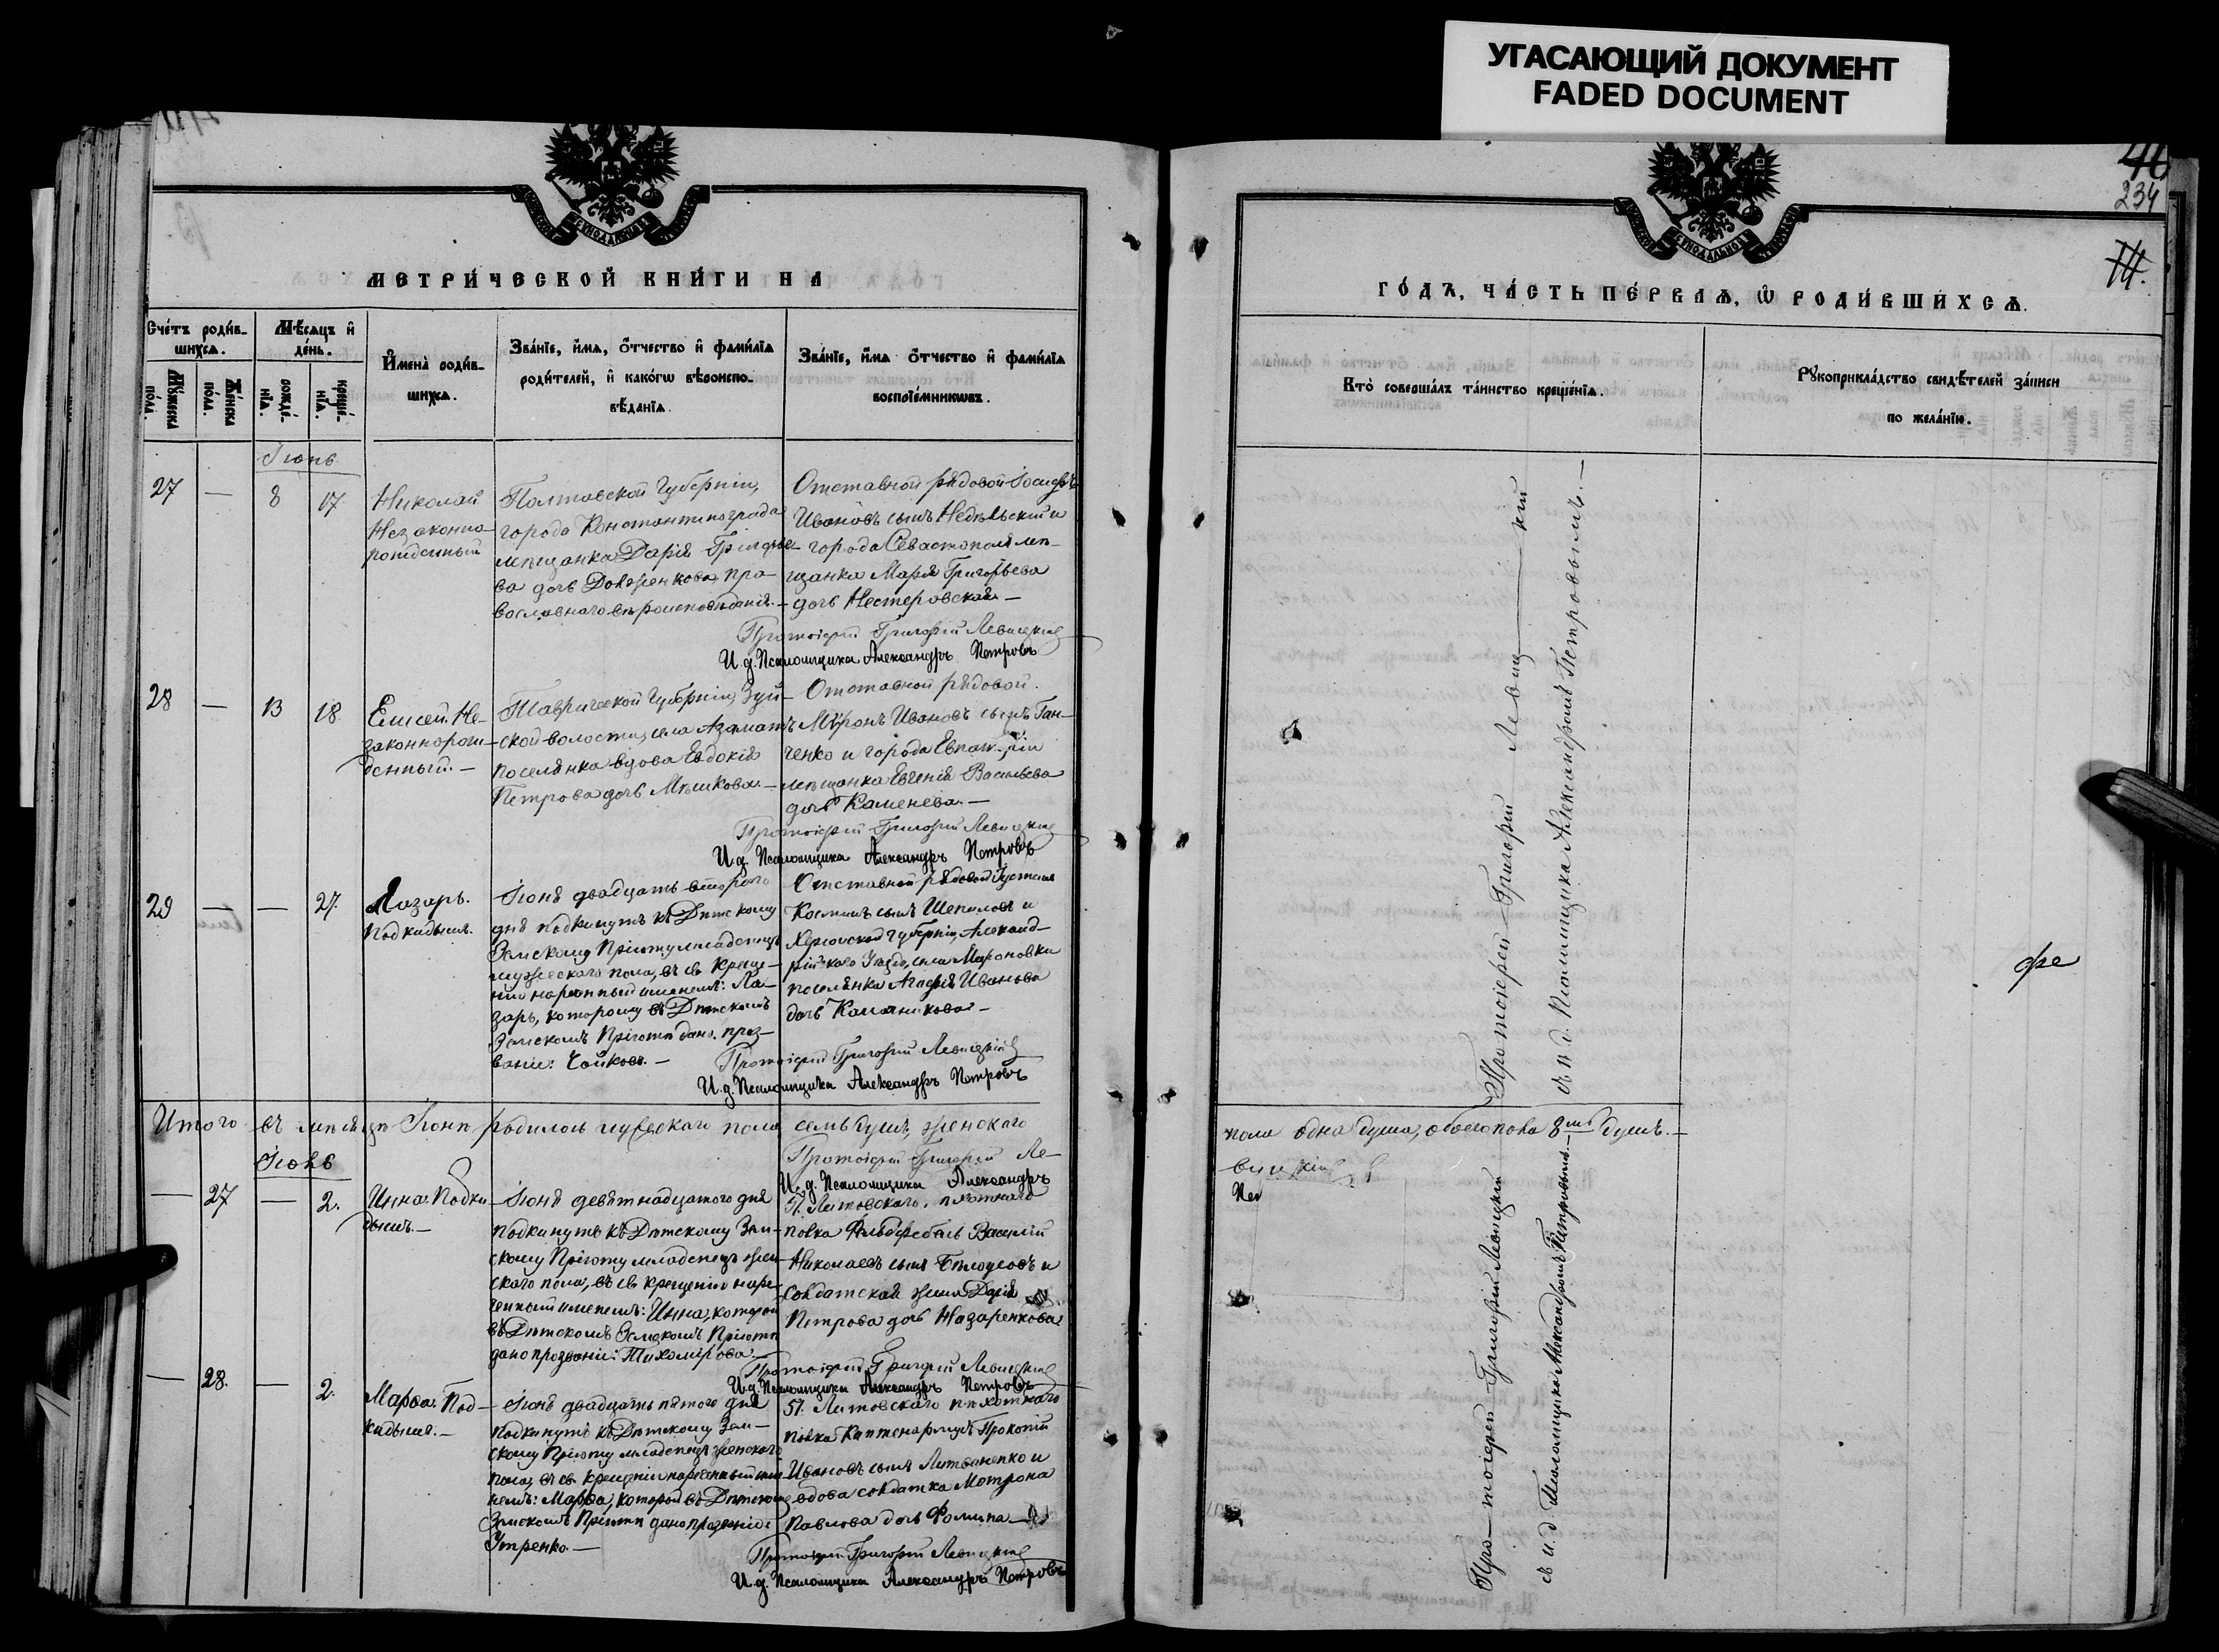 УГАСАЮЩИЙ ДОКУМЕНТ
FADED DOCUMENT
234
МЕТРИ́ЧЕСКОЙ КНИ́ГИ НА
Сче́тъ роди́в-
шихсѧ.
Мѣ́сѧцъ и҆
де́нь.
Мꙋ́жеска
пола.
Же́нска
пола.
рожде́-
нїѧ.
креще́-
нїѧ.
И҆мена̀ роди́в-
шихсѧ.
Зва́нїе, и҆́мѧ, ѻ҆́тчество и҆ фами́лїѧ
роди́телей, и҆ како́гѡ вѣроиспо-
вѣ́данїѧ.
Зва́нїе, и҆́мѧ ѻ҆́тчество и҆ фами́лїѧ
воспрїе́мникѡвъ.
Іюнь
27 — 8 17
Николай
Незаконно-
рожденный
Полтавской Губерніи,
города Константинограда
мѣщанка Дарія Григорье-
ва дочь Довженкова, пра-
вославнаго вѣроисповѣданія.—
Отставной рядовой Іосифъ
Ивановъ сынъ Недѣльскій и
города Севастополя мѣ-
щанка Марія Григорьева
дочь Нестеровская.—
Протоіерей Григорій Левицкій
И. д. Псаломщика Александръ Петровъ
28 — 13 18
Елисей. Не-
законнорож-
денный.—
Таврической Губерніи, Зуй-
ской волости, села Азаматъ
поселянка вдова Евдокія
Петрова дочь Мѣшкова.—
Отставной рядовой
Миронъ Ивановъ сынъ Ган-
ченко и города Евпаторіи
мѣщанка Евгенія Васильева
дочь Каменева.—
Протоіерей Григорій Левицкій
И. д. Псаломщика Александръ Петровъ
29 — — 27.
Лазарь.
Подкидышъ.
Іюня двадцать втораго
дня подкинутъ къ Дѣтскому
Земскому Пріюту младенецъ
мужескаго пола, въ св. креще-
ніи нареченный именемъ: Ла-
зарь, которому въ Дѣтскомъ
Земскомъ Пріютѣ дано проз-
ваніе: Чайковъ.—
Отставной рядовой Густинъ
Козминъ сынъ Шепиловъ и
Херсонской губерніи, Александ-
рійскаго Уѣзда, села Мароновки
поселянка Агафія Иванова
дочь
Протоіерей Григорій Левицкій
И. д. Псаломщика Александръ Петровъ
Итого въ мѣсяцѣ Іюнѣ родилось мужескаго пола семь душъ, женскаго
Протоіерей Григорій Ле-
И. д. Псаломщика Александръ
Іюль
— 27 — 2.
Инна. Подки-
дышъ.—
Іюня девятнадцатаго дня
подкинутъ къ Дѣтскому Зем-
скому Пріюту младенецъ жен-
скаго пола, въ св. крещеніи наре-
ченный именемъ: Инна, которой
въ Дѣтскомъ Земскомъ Пріютѣ
дано прозваніе: Тихомірова.—
51. Литовскаго пѣхотнаго
полка Фельдфебель Василій
Николаевъ сынъ Бѣлоусовъ и
Солдатская жена Дарія
Петрова дочь Назаренкова
Протоіерей Григорій Левицкій
И. д. Псаломщика Александръ Петровъ
— 28. — 2.
Марѳа. Под-
кидышъ.—
Іюня двадцать пятого дня
подкинутъ къ Дѣтскому Зем-
скому Пріюту младенецъ женскаго
пола, въ св. крещеніи нареченный име-
немъ: Марѳа, которой въ Дѣтскомъ
Земскомъ Пріютѣ дано прозваніе:
Утренко.—
51. Литовскаго пѣхотнаго
полка Каптенармусъ Прокопій
Ивановъ сынъ Литваненко и
вдова солдатка Мотрона
Павлова дочь Фомина
Протоіерей Григорій Левицкій
И. д. Псаломщика Александръ Петровъ
ГО́ДЪ, ЧА́СТЬ ПЕ́РВАѦ, Ѽ РОДИ́ВШИХСѦ.
Кто̀ соверша́лъ та́инство креще́нїѧ.
Рꙋкоприкла́дство свидѣ́телей за́писи
по жела́нїю.
Протоіерей Григорій Левиц— кій
съ и. д. Псаломщика Александромъ Петровымъ.—
пола одна душа, обоего пола 8мь душъ.—
вицкій
Пет
Про— тоіерей Григорій Левицкій
съ и. д. Псаломщика Александромъ Петровымъ.—